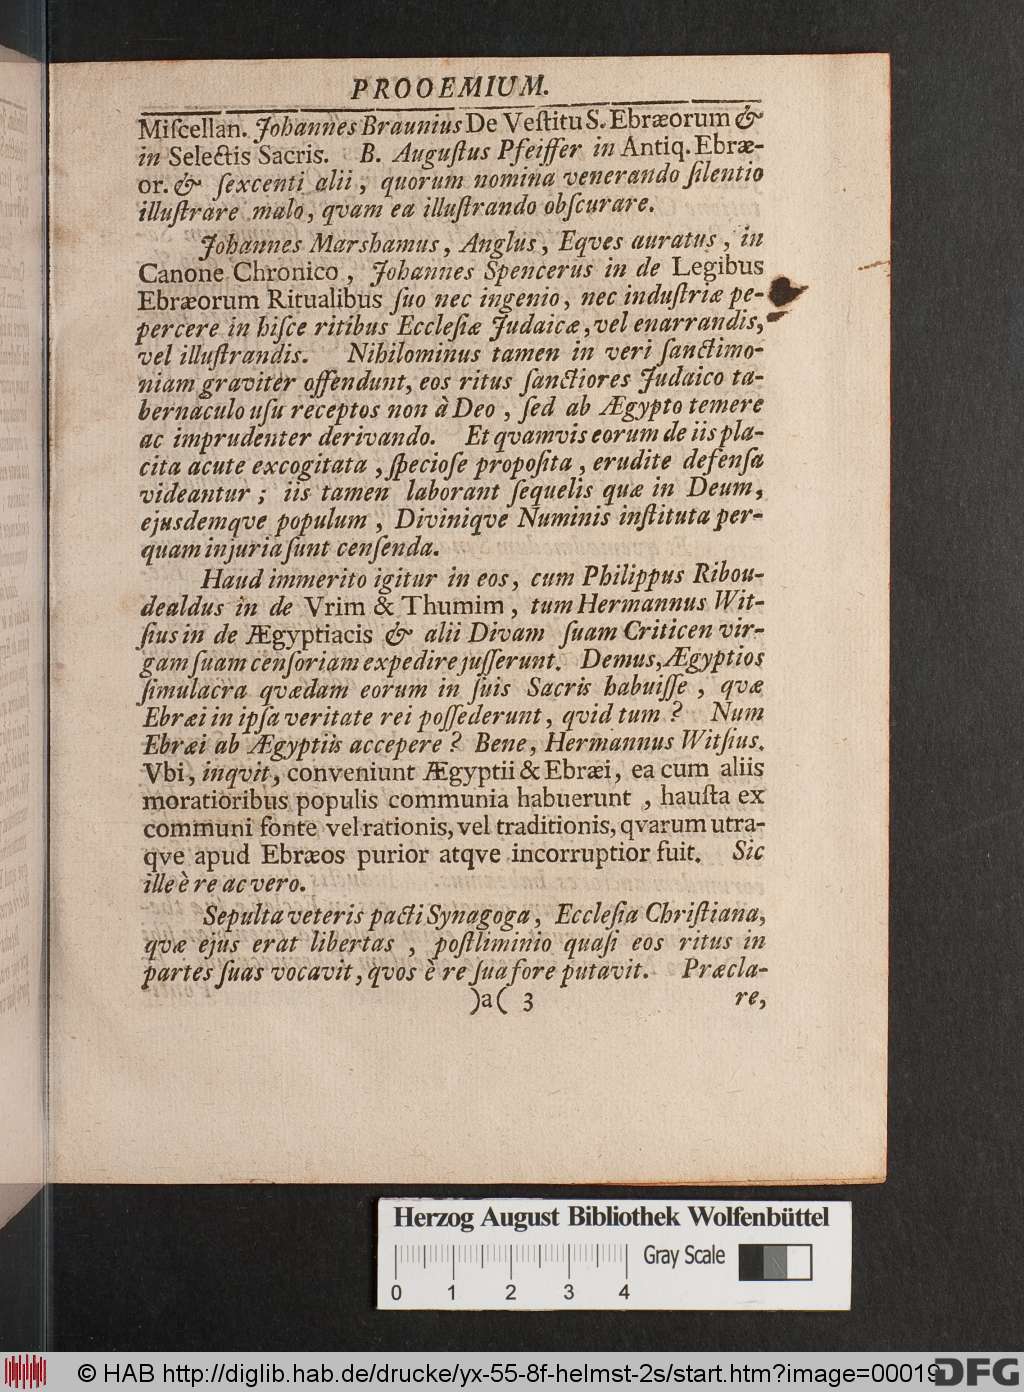 PROOEMIUM.
Miſcellan. Johannes Braunius De Veſtitu S. Ebræorum &
in Selectis Sacris. B. Auguſtus Pfeiffer in Antiq. Ebræ-
or. & ſexcenti alii, quorum nomina venerando ſilentio
illuſtrare malo, qvam ea illuſtrando obſcurare.
Johannes Marshamus, Anglus, Eqves auratus, in
Canone Chronico, Johannes Spencerus in de Legibus
Ebræorum Ritualibus ſuo nec ingenio, nec induſtriæ pe-
percere in hiſce ritibus Eccleſiæ Judaicæ, vel enarrandis,
vel illuſtrandis. Nihilominus tamen in veri ſanctimo-
niam graviter offendunt, eos ritus ſanctiores Judaico ta-
bernaculo uſu receptos non à Deo, ſed ab Ægypto temere
ac imprudenter derivando. Et qvamvis eorum de iis pla-
cita acute excogitata, ſpecioſe propoſita, erudite defenſa
videantur; iis tamen laborant ſequelis quæ in Deum,
ejusdemqve populum, Diviniqve Numinis inſtituta per-
quam injuria ſunt cenſenda.
Haud immerito igitur in eos, cum Philippus Ribou-
dealdus in de Vrim & Thumim, tum Hermannus Wit-
ſius in de Ægyptiacis & alii Divam ſuam Criticen vir-
gam ſuam cenſoriam expedire juſſerunt. Demus, Ægyptios
ſimulacra qvædam eorum in ſuis Sacris habuiſſe, qvæ
Ebræi in ipſa veritate rei poſſederunt, qvid tum? Num
Ebræi ab Ægyptiis accepere? Bene, Hermannus Witſius.
Vbi, inqvit, conveniunt Ægyptii & Ebræi, ea cum aliis
moratioribus populis communia habuerunt, hauſta ex
communi fonte vel rationis, vel traditionis, qvarum utra-
qve apud Ebræos purior atqve incorruptior fuit. Sic
ille è re ac vero.
Sepulta veteris pacti Synagoga, Eccleſia Chriſtiana,
qvæ ejus erat libertas, poſtliminio quaſi eos ritus in
partes ſuas vocavit, qvos è re ſua fore putavit. Præcla-
)a( 3 re,
Herzog August Bibliothek Wolfenbüttel
Gray Scale
0 1 2 3 4
© HAB http://diglib.hab.de/drucke/yx-55-8f-helmst-2s/start.htm?image=00019
DFG